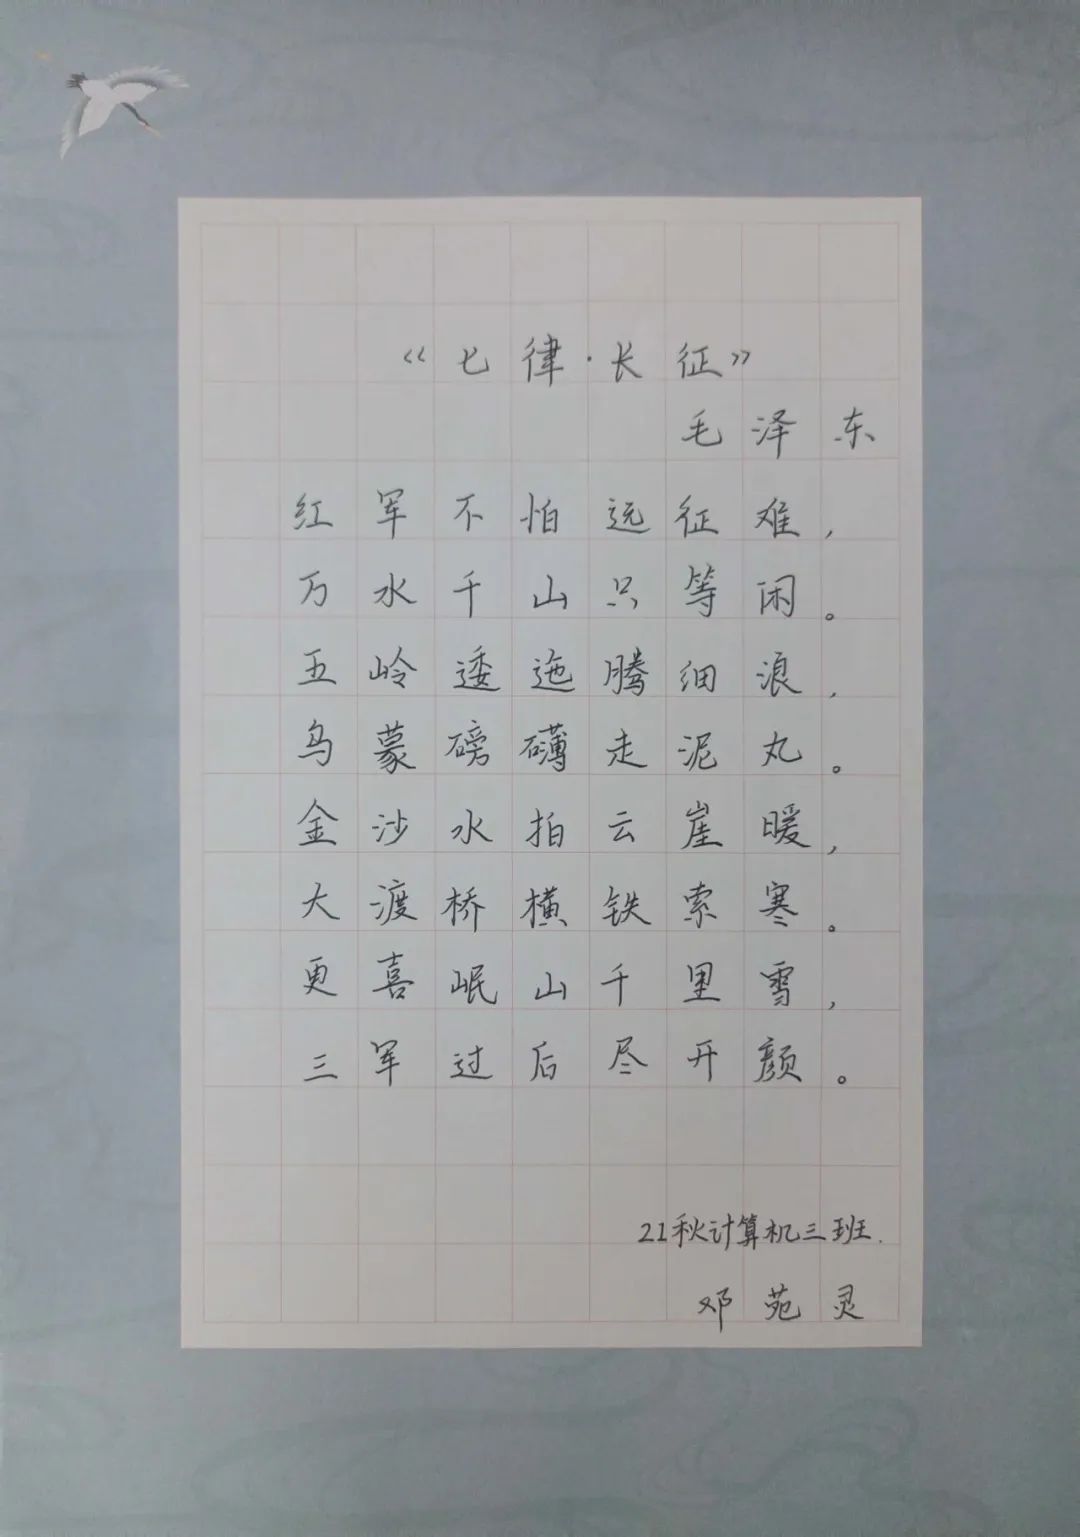 《七律·长征》
毛泽东
红军不怕远征难，
万水千山只等闲。
五岭逶迤腾细浪，
乌蒙磅礴走泥丸。
金沙水拍云崖暖，
大渡桥横铁索寒。
更喜岷山千里雪，
三军过后尽开颜。
21秋计算机三班.
邓苑灵